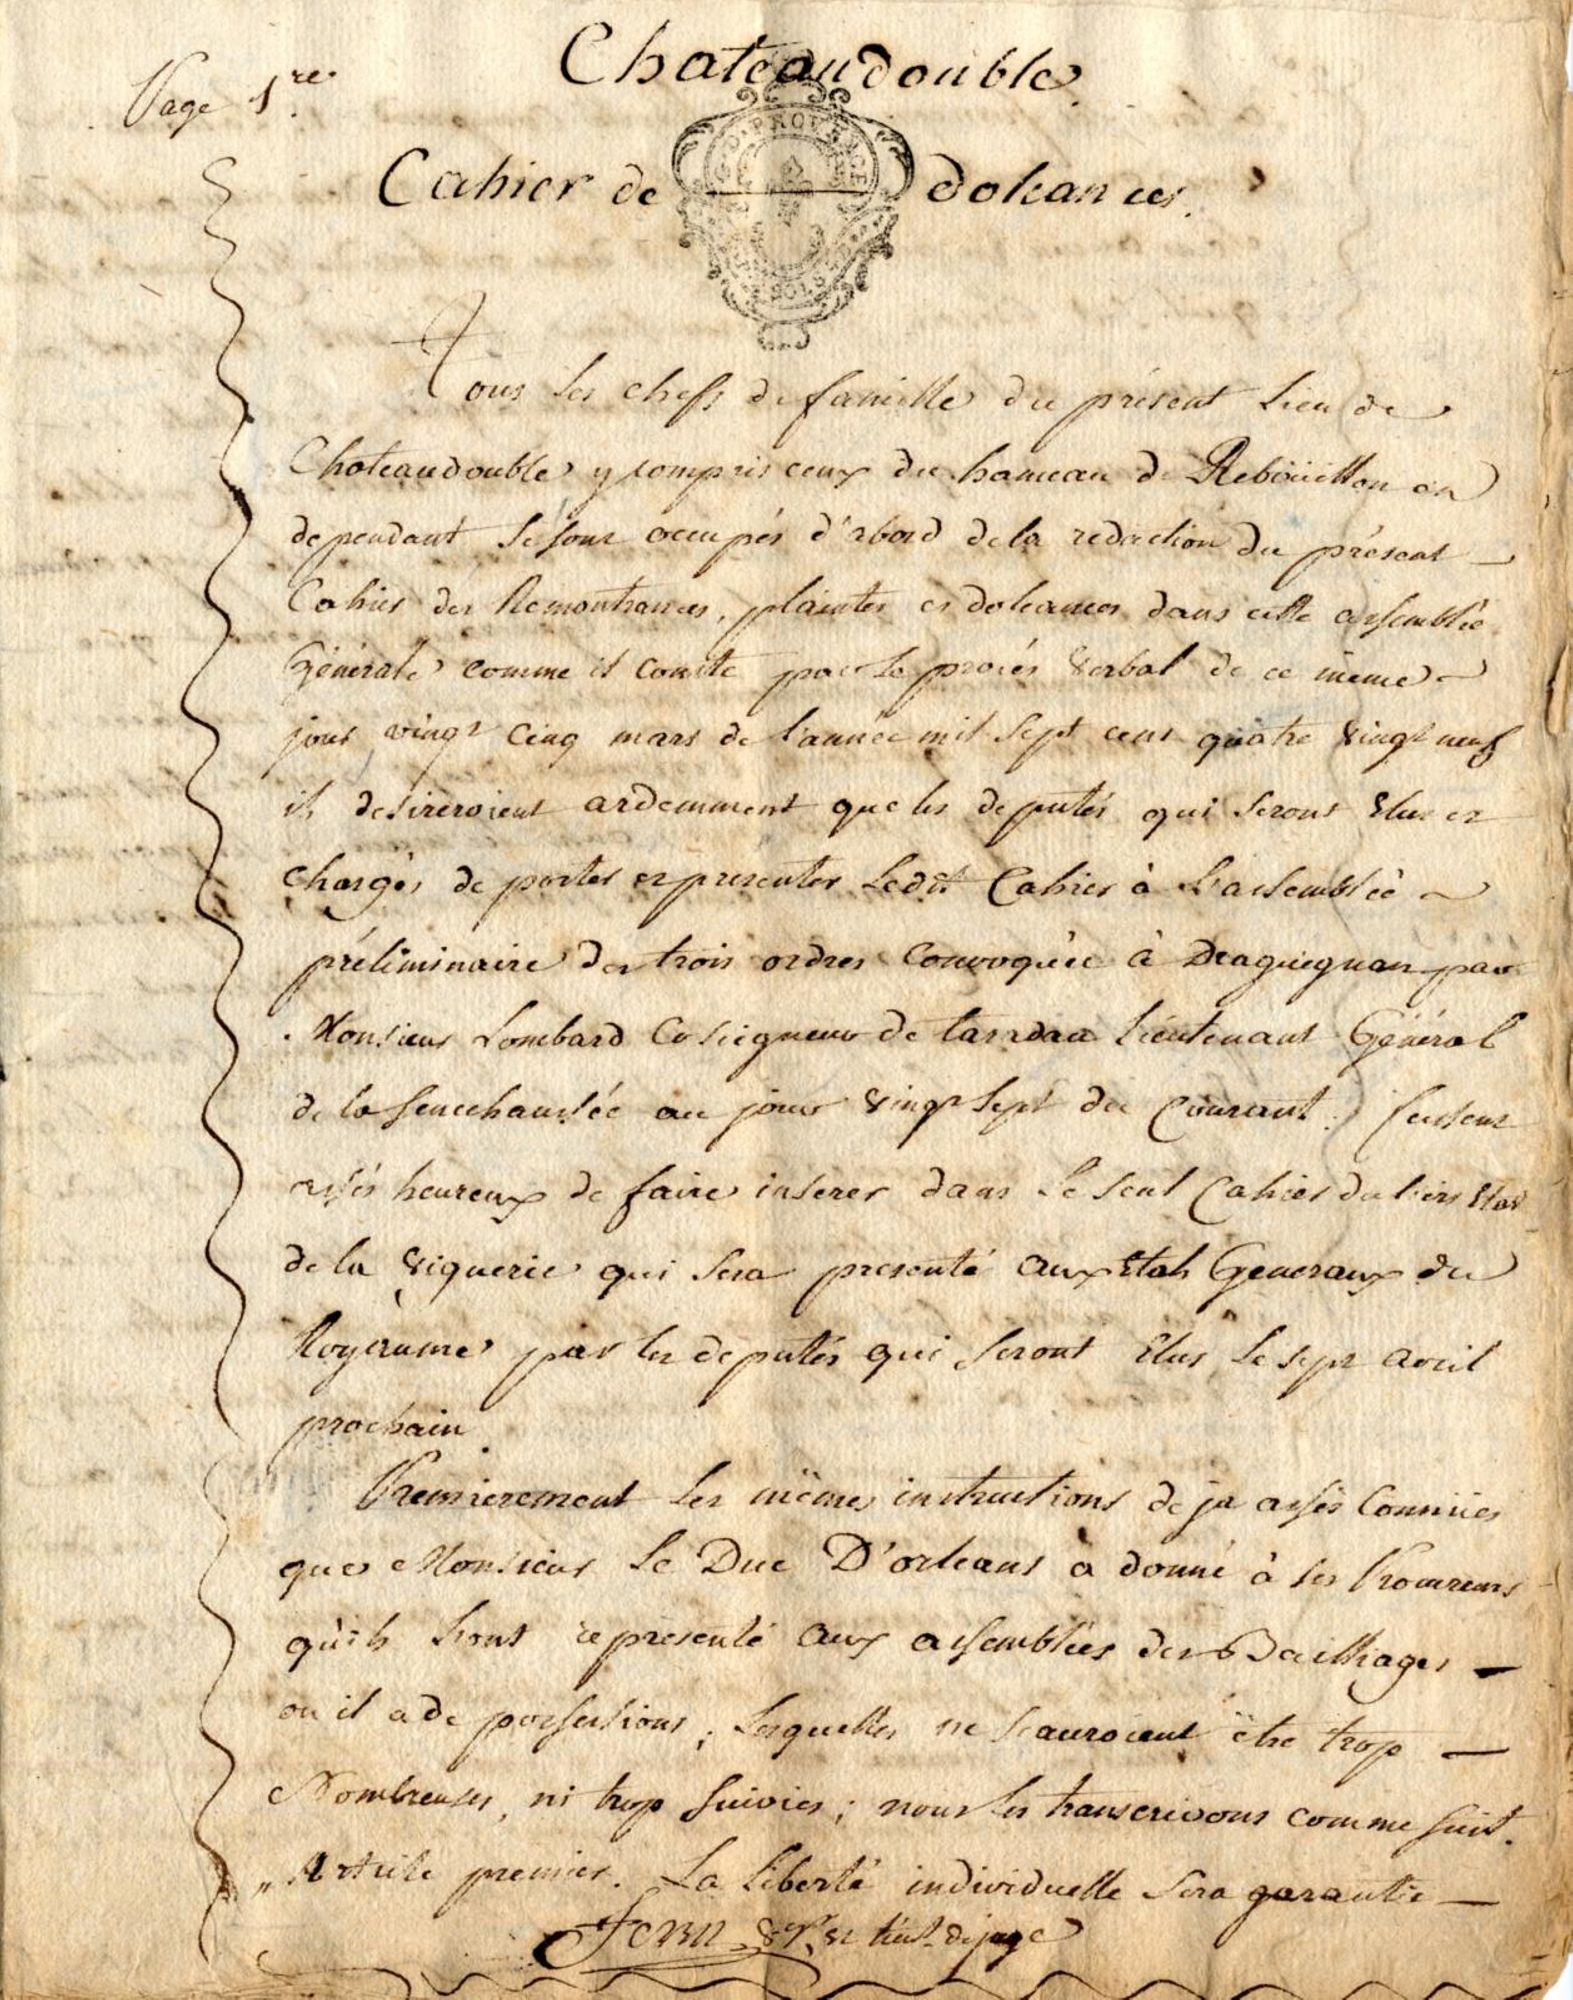 Page 1re.
Chateaudouble
G. D. PROVENCE
Cahier de doleances.
SOLS
Tous les chefs de famille du présent lieu de
Chateaudouble y compris ceux du hameau de Reboüillon en
dependant se sont occupés d'abord de la redaction du présent
Cahier des Remontrances, plaintes et doleances dans cette assemblée
Générale comme il conste par le procés verbal de ce même
jour vingt cinq mars de l'année mil sept cent quatre vingt neuf
ils desireroient ardemment que les deputés qui seront Elus et
chargés de porter et presenter ledit Cahier à L'assemblée
préliminaire des trois ordres Convoquée à Draguignan par
Monsieur Lombard Coseigneur de taradau lieutenant Général
de la senechaussée au jour vingt sept du Courant. fussent
assés heureux de faire inserer dans le seul Cahier du tiers Etat
de la viguerie qui sera presenté aux Etats Generaux du
Royaume par les deputés qui seront Elus le sept avril
prochain.
Premierement les mêmes instructions deja assés Connües
que Monsieur le Duc D'orleans a donné à ses Procureurs
qu'ils l'ont representé aux assemblées des Bailliages
ou il a de possessions; lesquelles ne scauroient être trop
Nombreuses, ni trop suivies; nous les transcrivons comme suit.
„ Article premier. La liberté individuelle sera garantie
vgr. et lieut. de juge